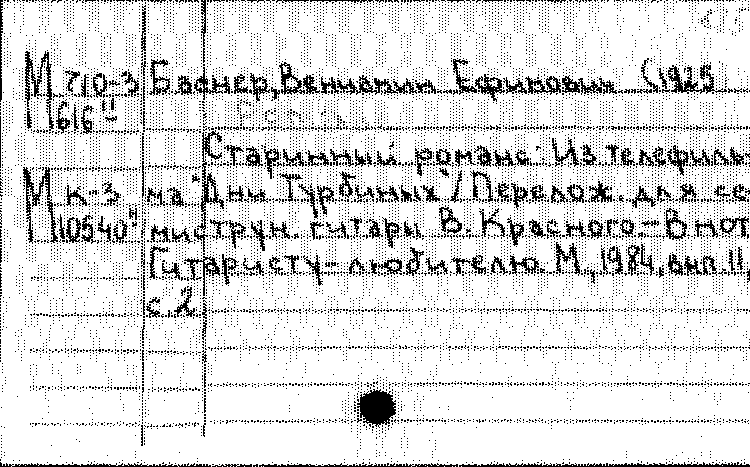 М 710-3 Баснер, Вениамин Ефимович (1925
616"
Старинный романс: Из телефиль-
М к-3 ма "Дни Турбиных" / Перелож. для се-
10540" миструн. гитары В. Красного.- В нот
Гитаристу-любителю. М., 1984, вып. 11,
с. 2